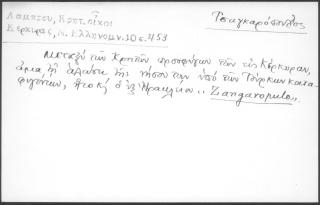 Λάμπρου, Κρητ. οἶκοι
Κερκύρας, Ν. Ἑλληνομν. 10 σ. 453
Τσαγκαρόπουλος
Μεταξὺ τῶν Κρητῶν προσφύγων τῶν εἰς Κέρκυραν,
ἅμα τῇ ἁλώσει τῆς νήσου των ὑπὸ τῶν Τούρκων κατα-
φυγόντων, ὁ ἐξ Ἡρακλείου "Zangaropulo".